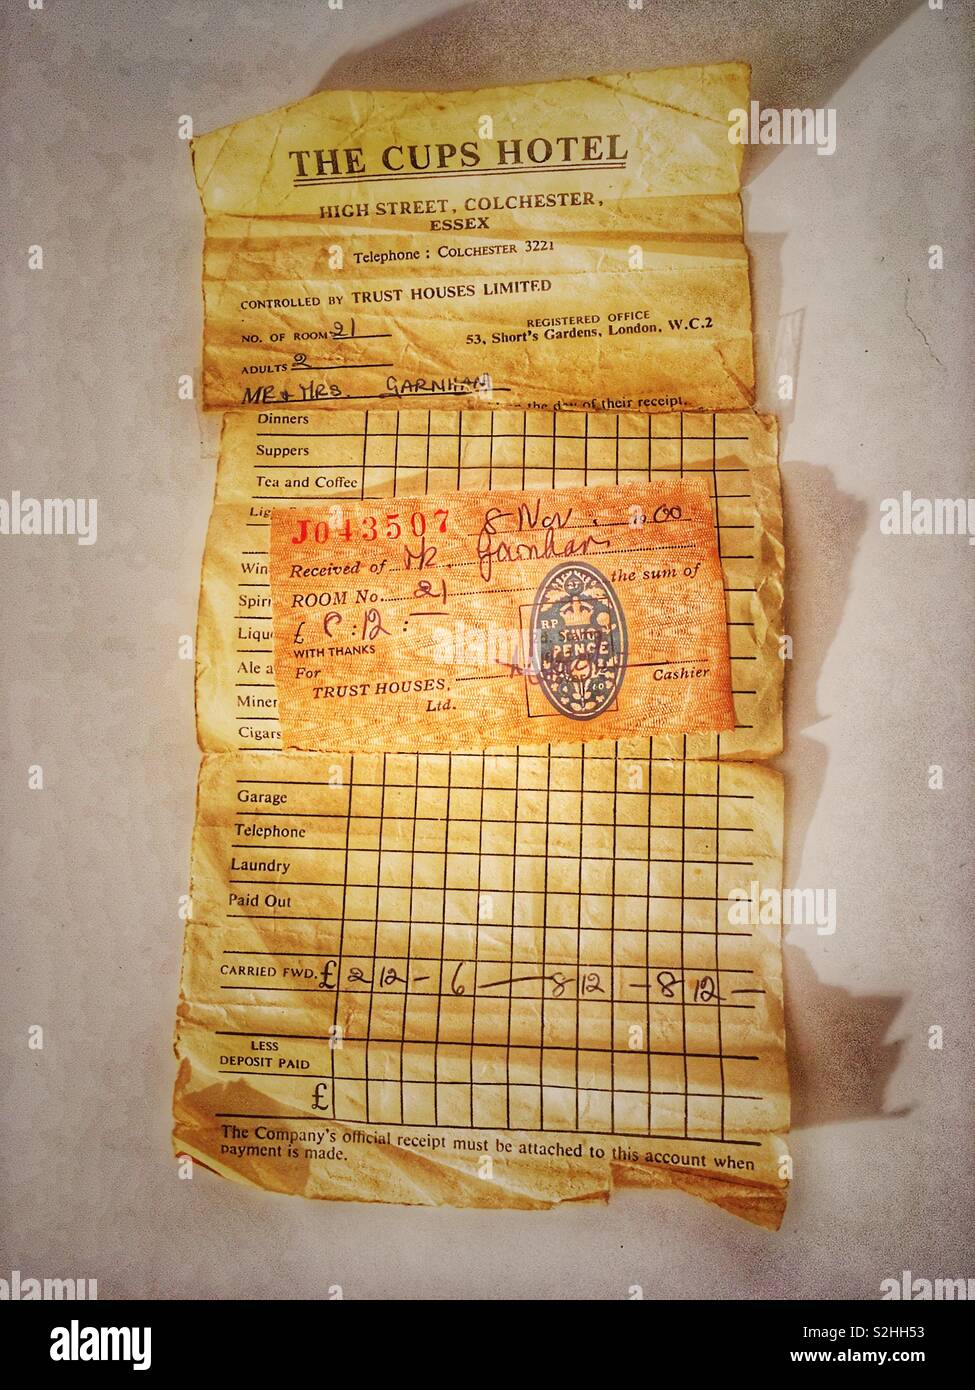 THE CUPS HOTEL
HIGH STREET, COLCHESTER,
ESSEX
Telephone : COLCHESTER 3221
CONTROLLED BY TRUST HOUSES LIMITED
REGISTERED OFFICE
53, Short's Gardens, London, W.C.2
NO. OF ROOM 21
ADULTS 2
MR & MRS. GARNHAM
the day of their receipt.
Dinners
Suppers
Tea and Coffee
J043507 8 Nov
Received of Mr. Garnham
the sum of
ROOM No. 21
£ 8 : 12 :
WITH THANKS
For
TRUST HOUSES,
Ltd.
Cashier
PENCE
Garage
Telephone
Laundry
Paid Out
CARRIED FWD. £ 2 12 - 6 — 8 12 - 8 12 —
LESS
DEPOSIT PAID
£
The Company's official receipt must be attached to this account when
payment is made.
alamy
Image ID: S2HH53
www.alamy.com